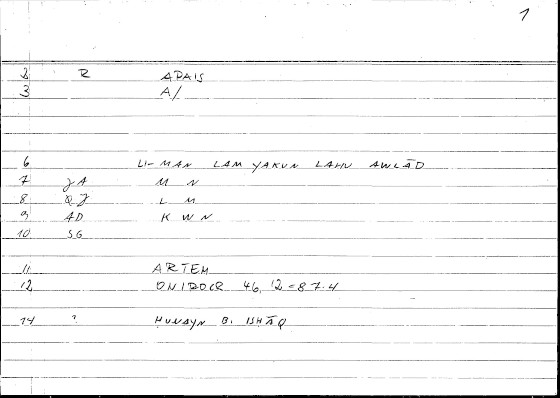 1
2 R APAIS
3 A/
6 LI-MAN LAM YAKUN LAHU AWLĀD
7 JA M N
8 QJ L M
9 AD K W N
10 SG
11 ARTEM
12 ONIROCR 46, 12 = 87.4
14 ? HUNAYN B. ISHĀQ